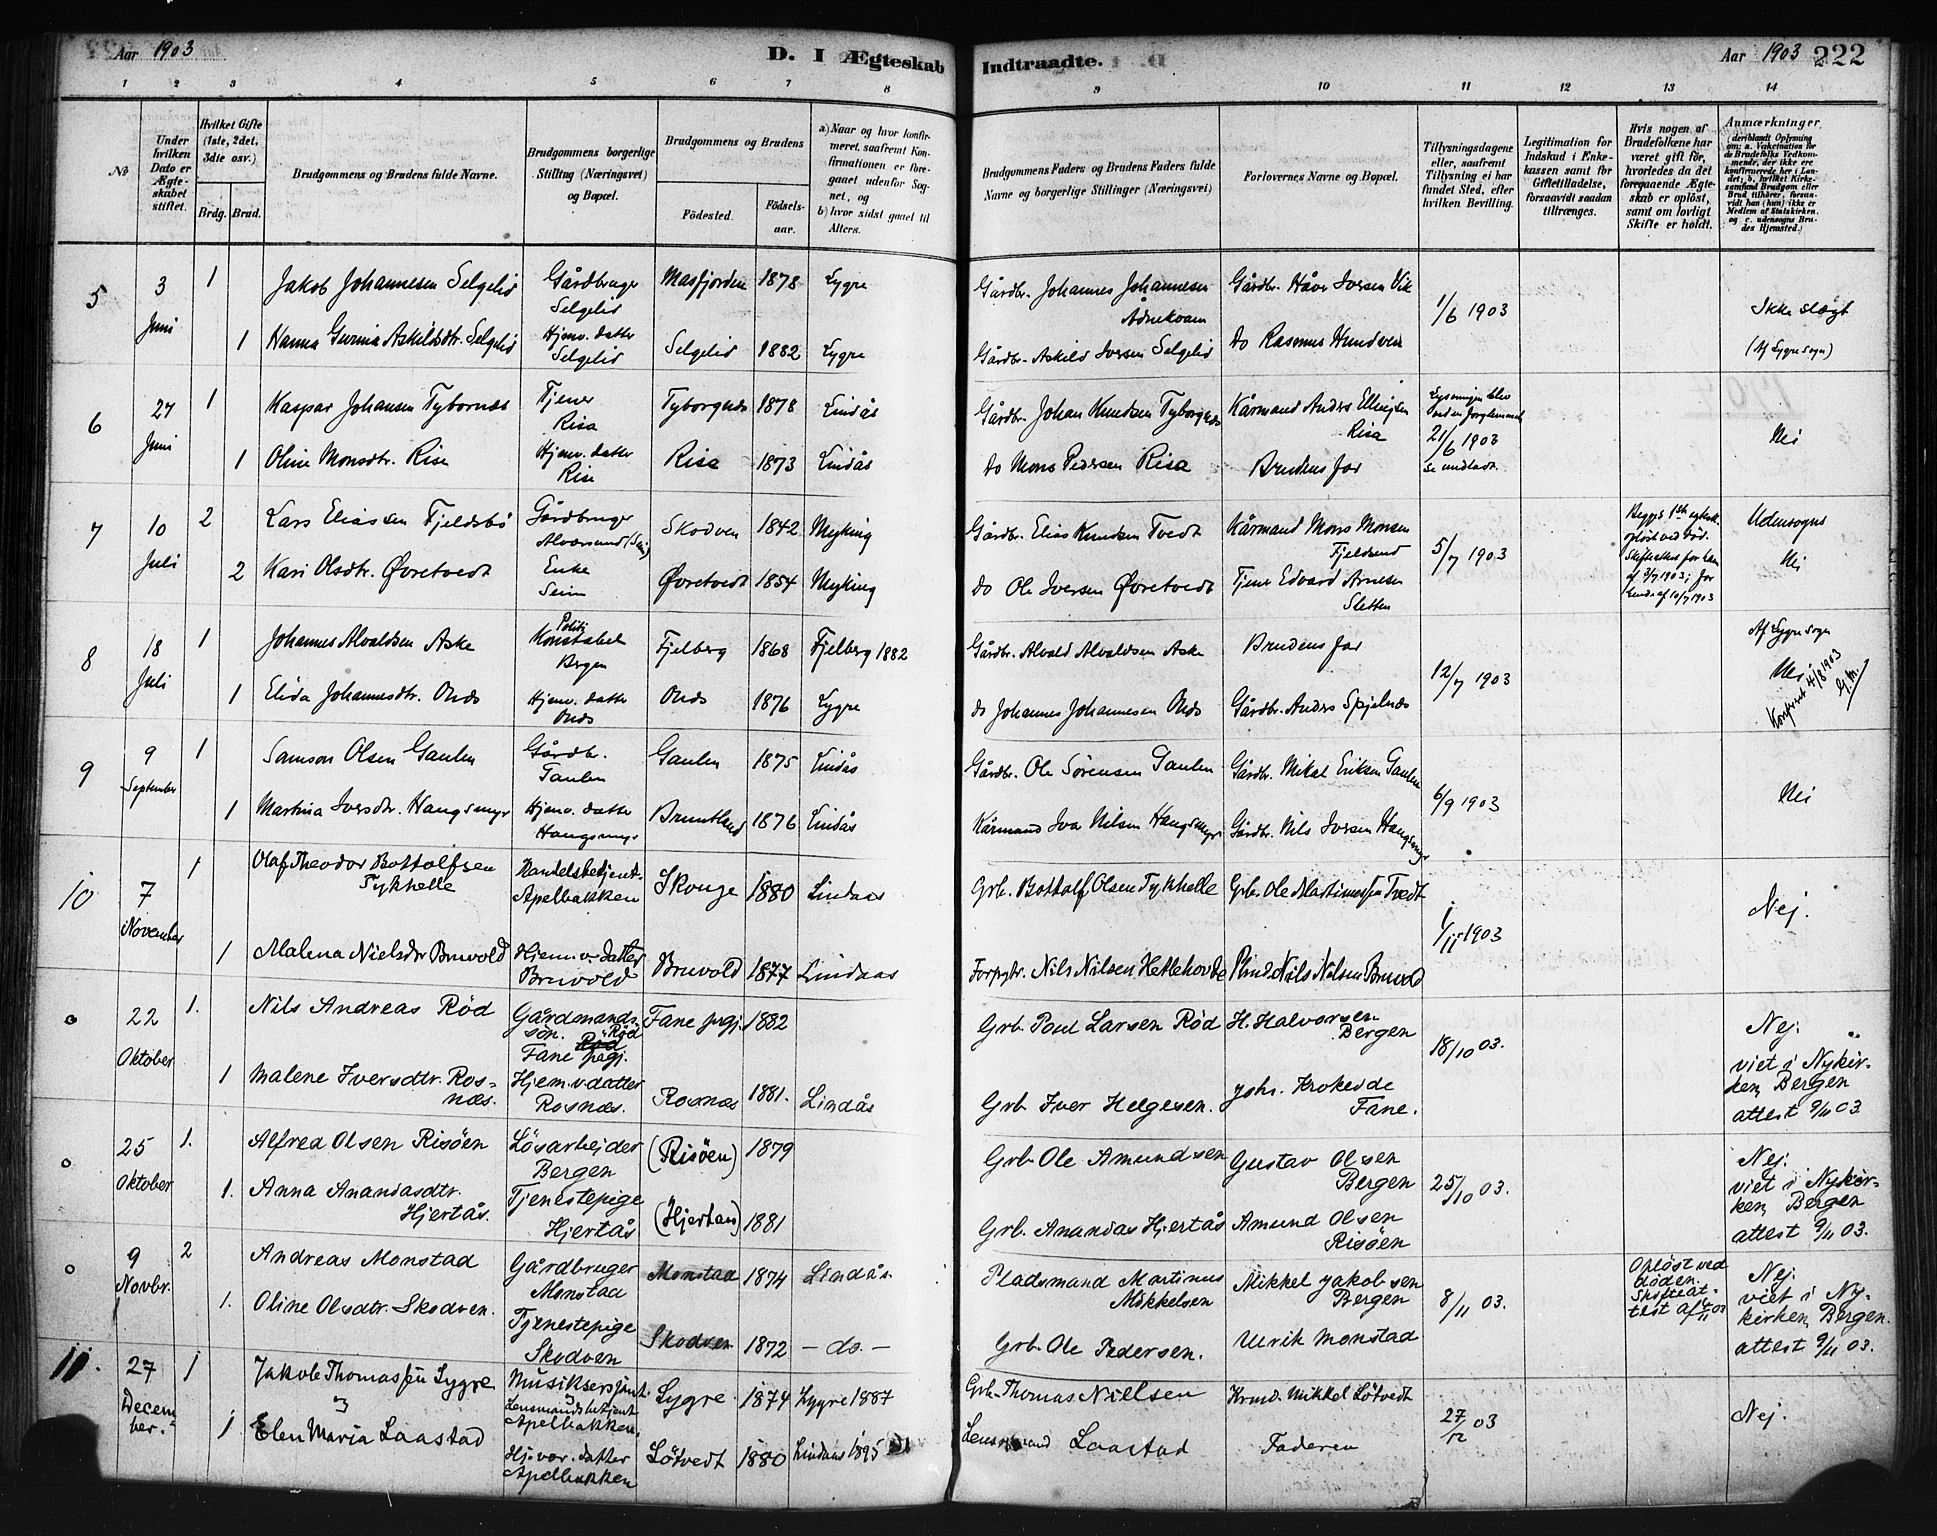 Aar 1903
D. I Ægteskab Indtraadte.
Aar 1903 222
1 2 3 4 5 6 7 8 9 10 11 12 13 14
No
Under hvilken Dato er Ægteskabet stiftet.
Hvilket Gifte (1ste, 2det, 3die osv.)
Brdg. Brud.
Brudgommens og Brudens fulde Navne.
Brudgommens borgerlige Stilling (Næringsvei) og Bopæl.
Brudgommens og Brudens
Fødested. Fødselsaar.
a) Naar og hvor konfirmeret, saafremt Konfirmationen er foregaaet udenfor Sognet, og
b) hvor sidst gaaet til Alters.
Brudgommens Faders og Brudens Faders fulde Navne og borgerlige Stillinger (Næringsvei)
Forlovernes Navne og Bopæl.
Tillysningsdagene eller, saafremt Tillysning ei har fundet Sted, efter hvilken Bevilling.
Legitimation for Indskud i Enkekassen samt for Giftetilladelse, forsaavidt saadan tiltrænges.
Hvis nogen af Brudefolkene har været gift før, hvorledes da det foregaaende Ægteskab er opløst, samt om lovligt Skifte er holdt.
Anmærkninger
(deriblandt Oplysning om: a. Vakcination for de Brudefolks Vedkommende, der ikke ere konfirmerede her i Landet; b. hvilket Kirkesamfund Brudgom eller Brud tilhører, forsaavidt han (hun) ikke er Medlem af Statskirken, og c. udensogns Brudes Hjemsted.)
5 3 Juni 1 Jakob Johannesen Selgelid Gårdbruger Selgelid Masfjorden 1878 Lygre Gårdbr. Johannes Johannesen Ådnekvam Gårdbr. Håver Iversen Vik 1/6 1903 Ikke slægt
1 Hanna Gurina Askildsdtr. Selgelid Hjemv. datter Selgelid Selgelid 1882 Lygre Gårdbr. Askild Iversen Selgelid do Rasmus Hundven (Af Lygre sogn)
6 27 Juni 1 Kaspar Johansen Tybornæs Tjener Risa Tyborgnæs 1878 Lindås Gårdbr. Johan Knudsen Tyborgnæs Kårmand Anders Ellingsen Risa Lysningen blev ved en forglemmelse 21/6 1903 undladt. Nei
1 Oline Monsdtr. Risa Hjemv. datter Risa Risa 1873 Lindås do Mons Pedersen Risa Brudens far
7 10 Juli 2 Lars Eliassen Fjeldsbø Gårdbruger Alversund (Seim) Skodven 1842 Myking Gårdbr. Elias Knudsen Tvedt Kårmand Mons Monsen Fjeldsend 5/7 1903 Begges 1ste egtesk. opløst ved død. Skifteattest for ham af 3/7 1903; for hende af 10/7 1903 Udensogns
2 Kari Olsdtr. Øvretvedt Enke Seim Øvretvedt 1854 Myking do Ole Iversen Øvretvedt Tjener Edvard Arnesen Sletten Nei
8 18 Juli 1 Johannes Alvaldsen Aske Politi Konstabel Bergen Fjelberg 1868 Fjelberg 1882 Gårdbr. Alvald Alvaldsen Aske Brudens far 12/7 1903 Af Lygre sogn
1 Elida Johannesdtr. Onæs Hjemv. datter Onæs Onæs 1876 Lygre do Johannes Johannesen Onæs Gårdbr. Anders Spjelnæs Nei Konfereret 4/8 1903 G.M.
9 9 September 1 Samson Olsen Gaulen Gårdbr. Gaulen Gaulen 1875 Lindås Gårdbr. Ole Sørensen Gaulen Gårdbr. Mikal Eriksen Gaulen 6/9 1903 Nei
1 Martina Iversdtr. Haugsmyr Hjemv. datter Haugsmyr Bruntland 1876 Lindås Kårmand Iver Nilsen Haugsmyr Gårdbr. Nils Iversen Haugsmyr
10 7 November 1 Olaf Theodor Bottolfsen Tykhelle Handelsbetjent. Apelbakken Skouge 1880 Lindaas Grb. Bottolf Olsen Tykhelle Grb. Ole Martinussen Tvedt 1/11 1903 Nej.
1 Malena Nielsdtr Bruvold Hjemv. datter Bruvold Bruvold 1877 Lindaas Forpgtr. Nils Nilsen Hettehovde Plmd. Nils Nilsen Bruvold
o 22 Oktober 1. Nils Andreas Rød Gårdmandssøn. Rød Fane pgj. Fane pgj. 1882 Grb. Poul Larsen Rød H. Halvorsen Bergen 18/10 03. Nej. viet i Nykirken, Bergen attest 9/11 03.
1 Malene Iversdtr. Rosnæs. Hjemv. datter Rosnæs. Rosnæs 1881. Lindås Grb. Iver Helgesen. Johs. Krokeide Fane.
o 25 Oktober 1. Alfred Olsen Risöen Løsarbejder Bergen (Risöen) 1879 Grb. Ole Amundsen Gustav Olsen Bergen 25/10 03. Nej. viet i Nykirken, Bergen attest 9/11 03.
1. Anna Ananiasdtr. Hjertås. Tjenestepige Hjertås (Hjertaas) 1881 Grb. Ananias Hjertås Amund Olsen Risöen
o 9 Novbr. 2 Andreas Monstad Gårdbruger Monstad Monstad 1874 Lindås. Pladsmand Martinus Mikkelsen Mikkel Jakobsen Bergen 8/11 03. Opløst ved døden. Skifteattest af 4/11 03 Nej. viet i Nykirken, Bergen. attest 9/11 03.
1. Oline Olsdtr. Skodven. Tjenestepige Skodven Skodven 1872 — do. — Grb. Ole Pedersen. Ulrik Monstad
11. 27 December. 1 Jakob Thomassen Lygre Musiksersjant. Lensmandsbetjent Apelbakken. Lygre 1874 Lygre 1887 Grb. Thomas Nillsen Krmd. Mikkel Løtvedt 27/12 03 Nej.
1 Elen Maria Laastad Hj. vær. datter Apelbakken Løtvedt 1880 Lindaas 1895 Lensmand Laastad Faderen